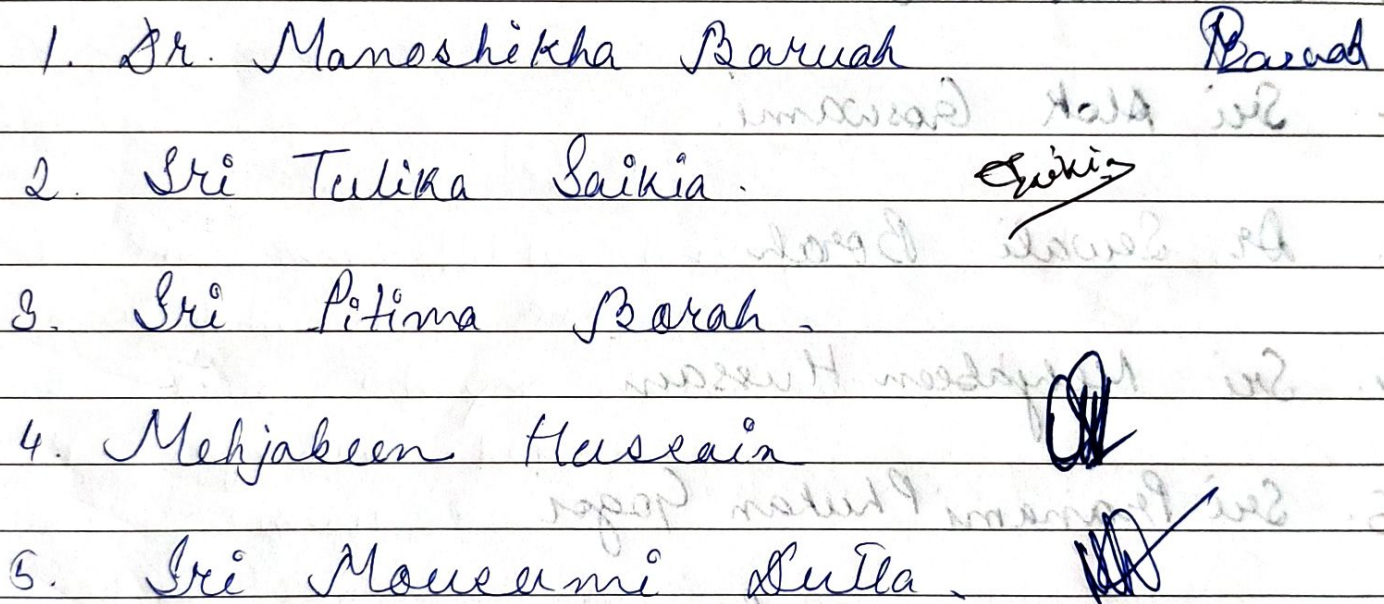 1. Dr. Manoshikha Baruah Baruah
2. Sri Tulika Saikia. Saikia
3. Sri Pitima Borah.
4. Mehjabeen Hussain
5. Sri Mousumi Dutta.